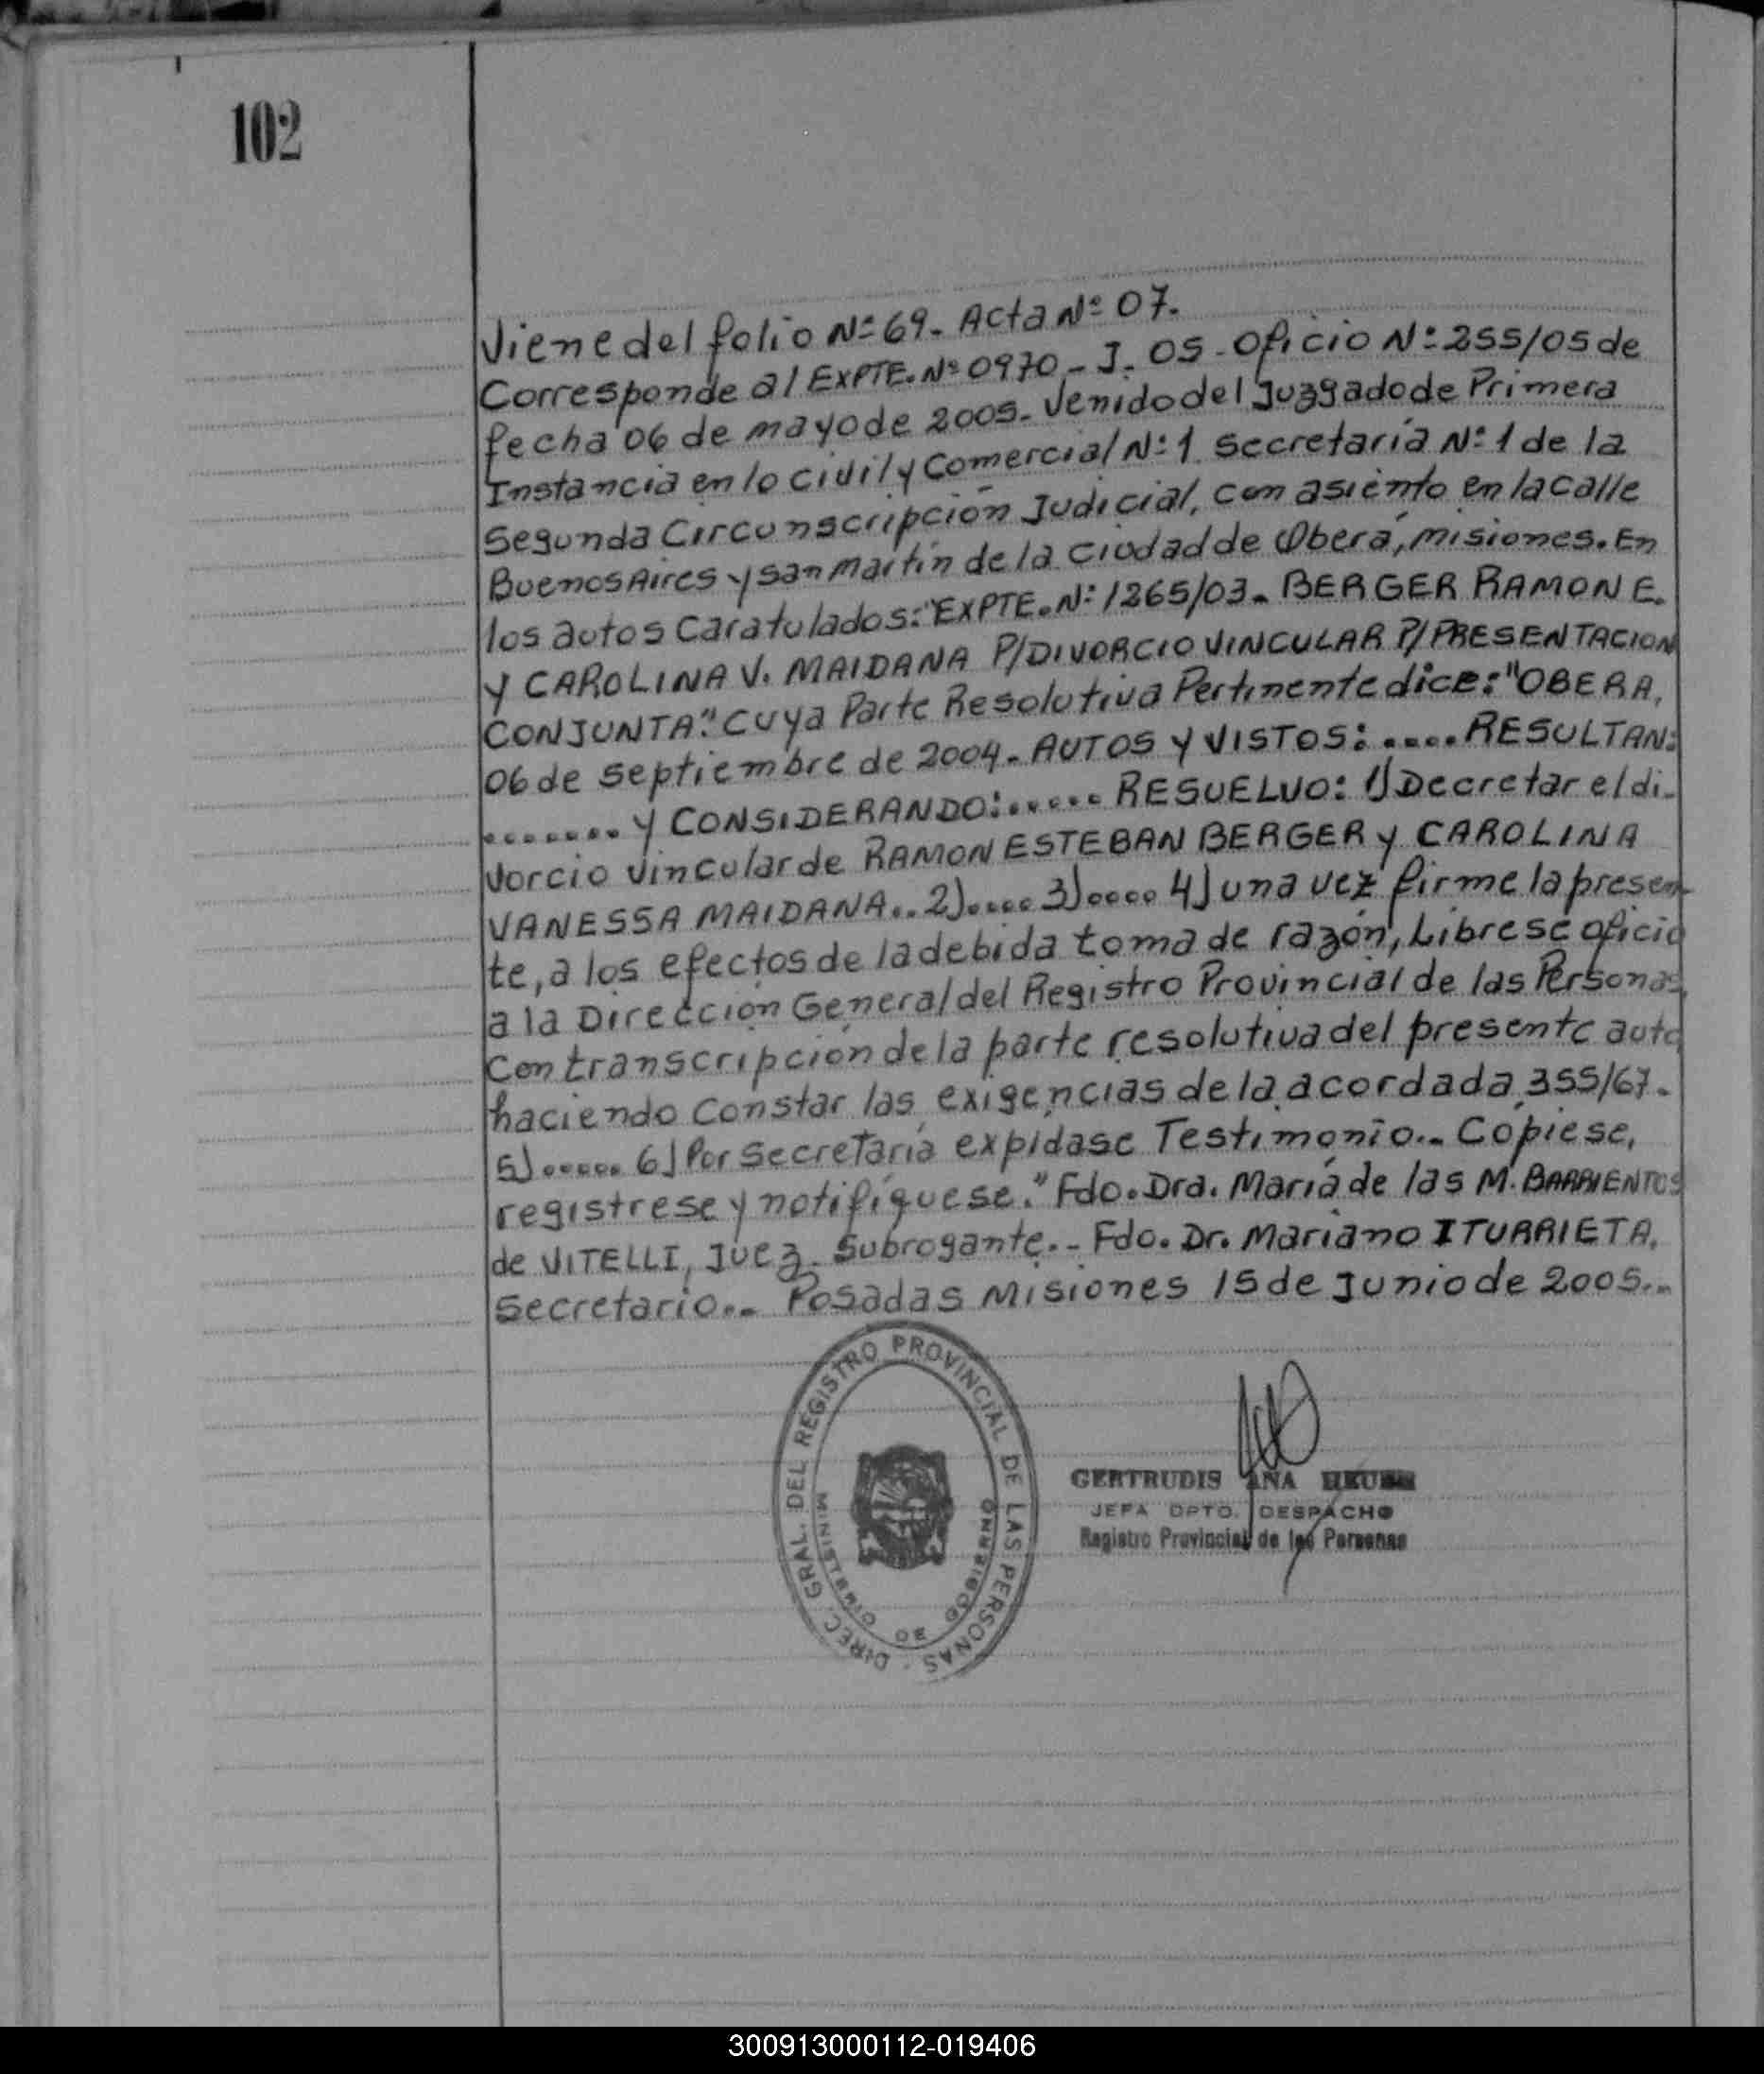 102
Viene del folio Nº 69. Acta Nº 07.
Corresponde al EXPTE. Nº 0970 - J. 05 - Oficio Nº: 255/05 de
fecha 06 de mayo de 2005. Venido del Juzgado de Primera
Instancia en lo Civil y Comercial Nº: 1 Secretaría Nº: 1 de la
Segunda Circunscripción Judicial, con asiento en la calle
Buenos Aires y San Martín de la ciudad de Oberá, misiones. En
los autos Caratulados: "EXPTE. Nº: 1265/03. BERGER RAMON E.
y CAROLINA V. MAIDANA P/DIVORCIO VINCULAR P/PRESENTACION
CONJUNTA". Cuya Parte Resolutiva Pertinente dice: "OBERA,
06 de septiembre de 2004. AUTOS Y VISTOS: ..... RESULTAN:
....... Y CONSIDERANDO: ...... RESUELVO: 1) Decretar el di-
vorcio vincular de RAMON ESTEBAN BERGER y CAROLINA
VANESSA MAIDANA.. 2)..... 3)..... 4) una vez firme la presen-
te, a los efectos de la debida toma de razón, Librese oficio
a la Dirección General del Registro Provincial de las Personas,
con transcripción de la parte resolutiva del presente auto
haciendo constar las exigencias de la acordada 355/67.
5)...... 6) Por Secretaría expidase Testimonio.. Cópiese,
registrese y notifíquese." Fdo. Dra. María de las M. BARRIENTOS
de VITELLI, Juez Subrogante.- Fdo. Dr. Mariano ITURRIETA.
Secretario.. Posadas Misiones 15 de Junio de 2005..
DIREC. GRAL. DEL REGISTRO PROVINCIAL DE LAS PERSONAS
MINISTERIO DE GOBIERNO
GERTRUDIS ANA
JEFA DPTO. DESPACHO
Registro Provincial de las Personas
300913000112-019406